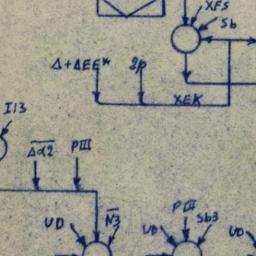 XFS
Sb
Δ+ΔEE*
Sp
XEK
I13
Δα2 PIII
UD N3 UD PIII Sb3 UD